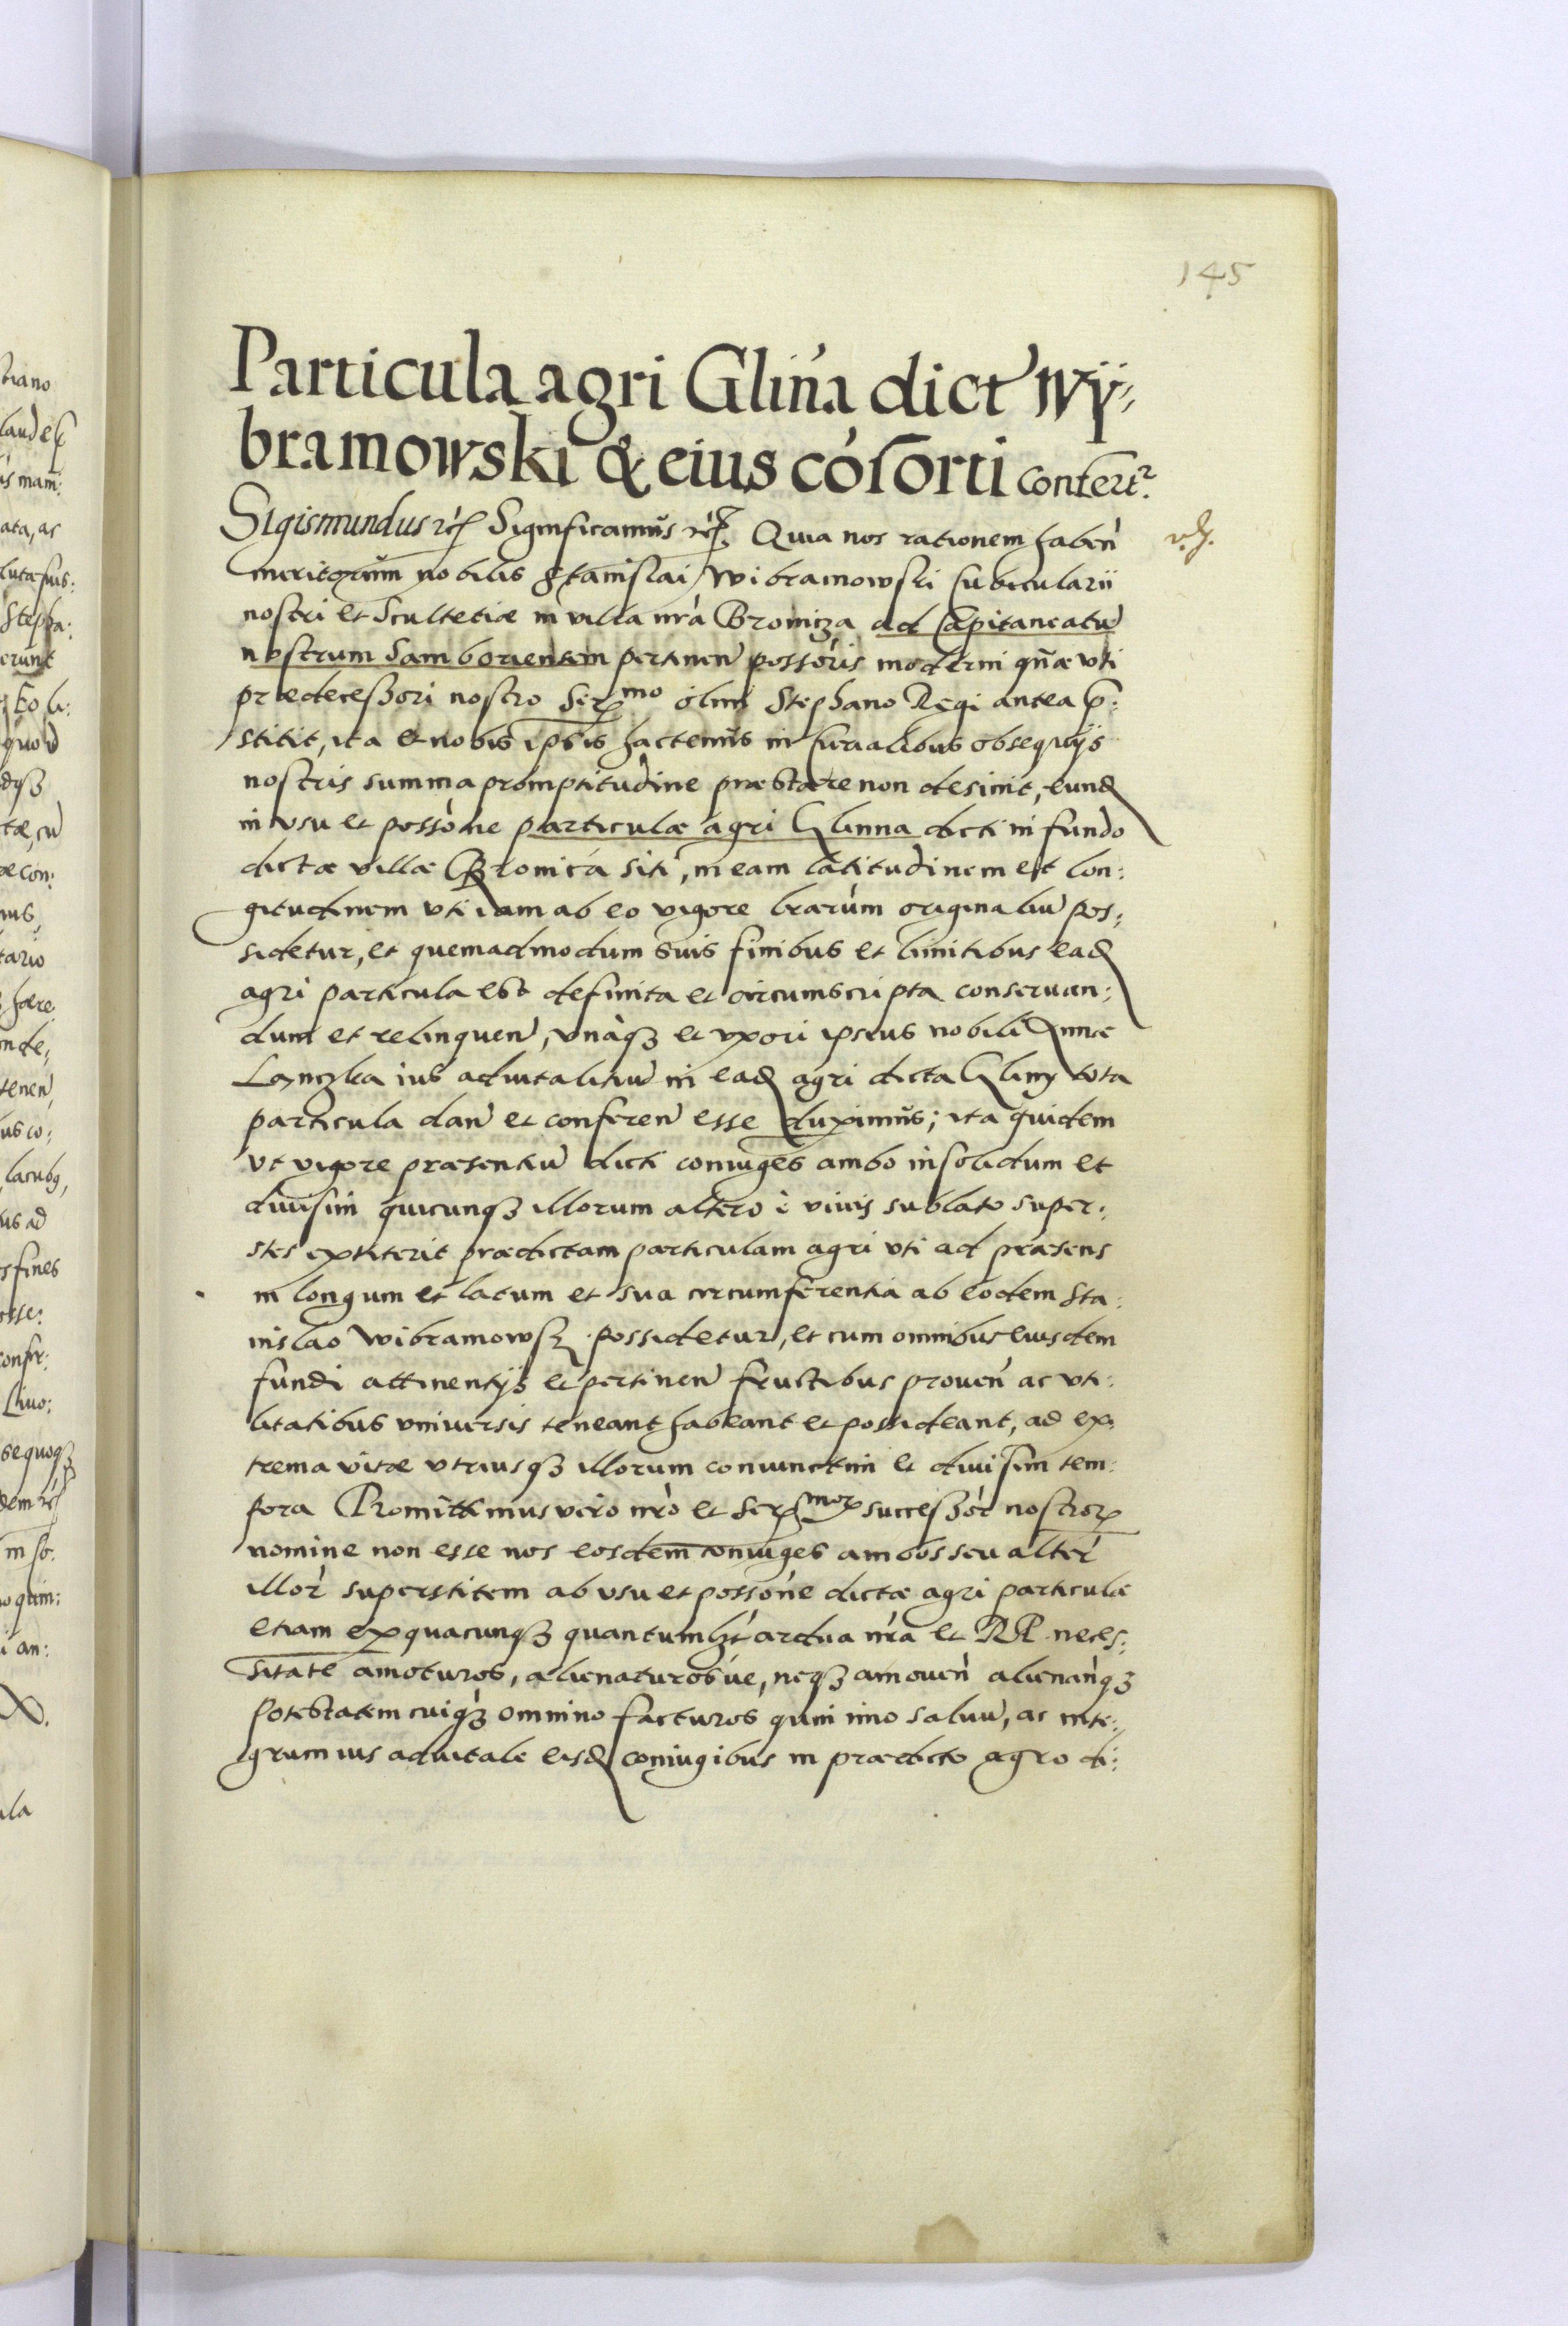 145
Particula agri Glina dict Wÿ⸗
bramowski & eius cósorti Confert^r.
Sigismundus rc̃ Significamus rc̃. Quia nos rationem haben̄
meritorum nobilis Stanislai Wibramowski Cubicularii
nostri et Scultetiæ in villa nrã Bronicza ad Capitaneatū
nostrum Samboriensem pertinen̄ possóris moderni quæ vti
prædecessori nostro Ser^mo olim Stephano Regi antea p̃:
stitit, ita et nobis ipsis hactenus in Curialibus obsequijs
nostris summa promptitudine præstare non desinit, eund
in vsu et possòne particulæ agri Glinna dicti in fundo
dictæ villæ Bronica siti, in eam latitudinem et lon:
gitudinem vti iam ab eo vigore lrarum originaliū pos:
sidetur, et quemadmodum suis finibus et limitibus ead
agri particula est definita et circumscripta conseruan:
dum et relinquen̄, vnàqꝫ et vxori ipsius nobili Annæ
Lanczka ius aduitalitiū in ead agri dicta Gliny tota
particula dan̄ et conferen̄ esse duximus; ita quidem
vt vigore præsentiū dicti coniuges ambo insolidum et
diuisim quicunqꝫ illorum altero è viuis sublato super:
stes extiterit prædictam particulam agri vti ad præsens
in longum et latum et sua circumferentia ab eodem Sta:
nislao Wibramowsk possidetur, et cum omnibus eiusdem
fundi attinentijs et pertinen̄ fructibus prouen̄ ac vti:
litatibus vniuersis teneant habeant et possideant, ad ex:
trema vitæ vtriusqꝫ illorum coniunctim et diuisim tem:
pora Promittimus vero nrò et Ser^mor successór nostror
nomine non esse nos eosdem coniuges ambos seu alter
illor superstitem ab vsu et possóne dictæ agri particulæ
etiam ex quacunqꝫ quantumhet ardua nrã et RP. neces:
sitate amoturos, alienaturos ùe, neqꝫ amouen̄ alienan̄qꝫ
potestatem cuiqꝫ omnino facturos quin imo saluū, ac inte:
grum ius aduitale eisd coniugibus in prædicto agro di: